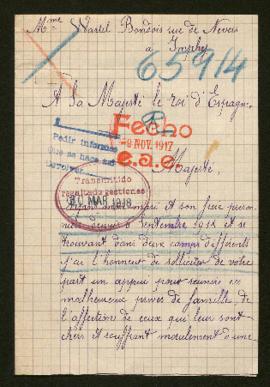 Mme Wartel Bondois rue de Nevers
à Imphy
65914
A Sa Majesté le roi d'Espagne
Fecho
-9 NOV. 1917
e.a.e.
Pedir informes
Que se hace
devolver
Majesté,
Transmitido
resultado gestiones
30 MAR 1918
Ayant mon mari et son frère prison
niers depuis septembre 1914 et se
trouvant dans deux camps différents
j'ai l'honneur de solliciter de votre
part un appui pour réunir ces
malheureux privés de famille, de
l'affection de ceux qui leur sont
chers et souffrant moralement d'une